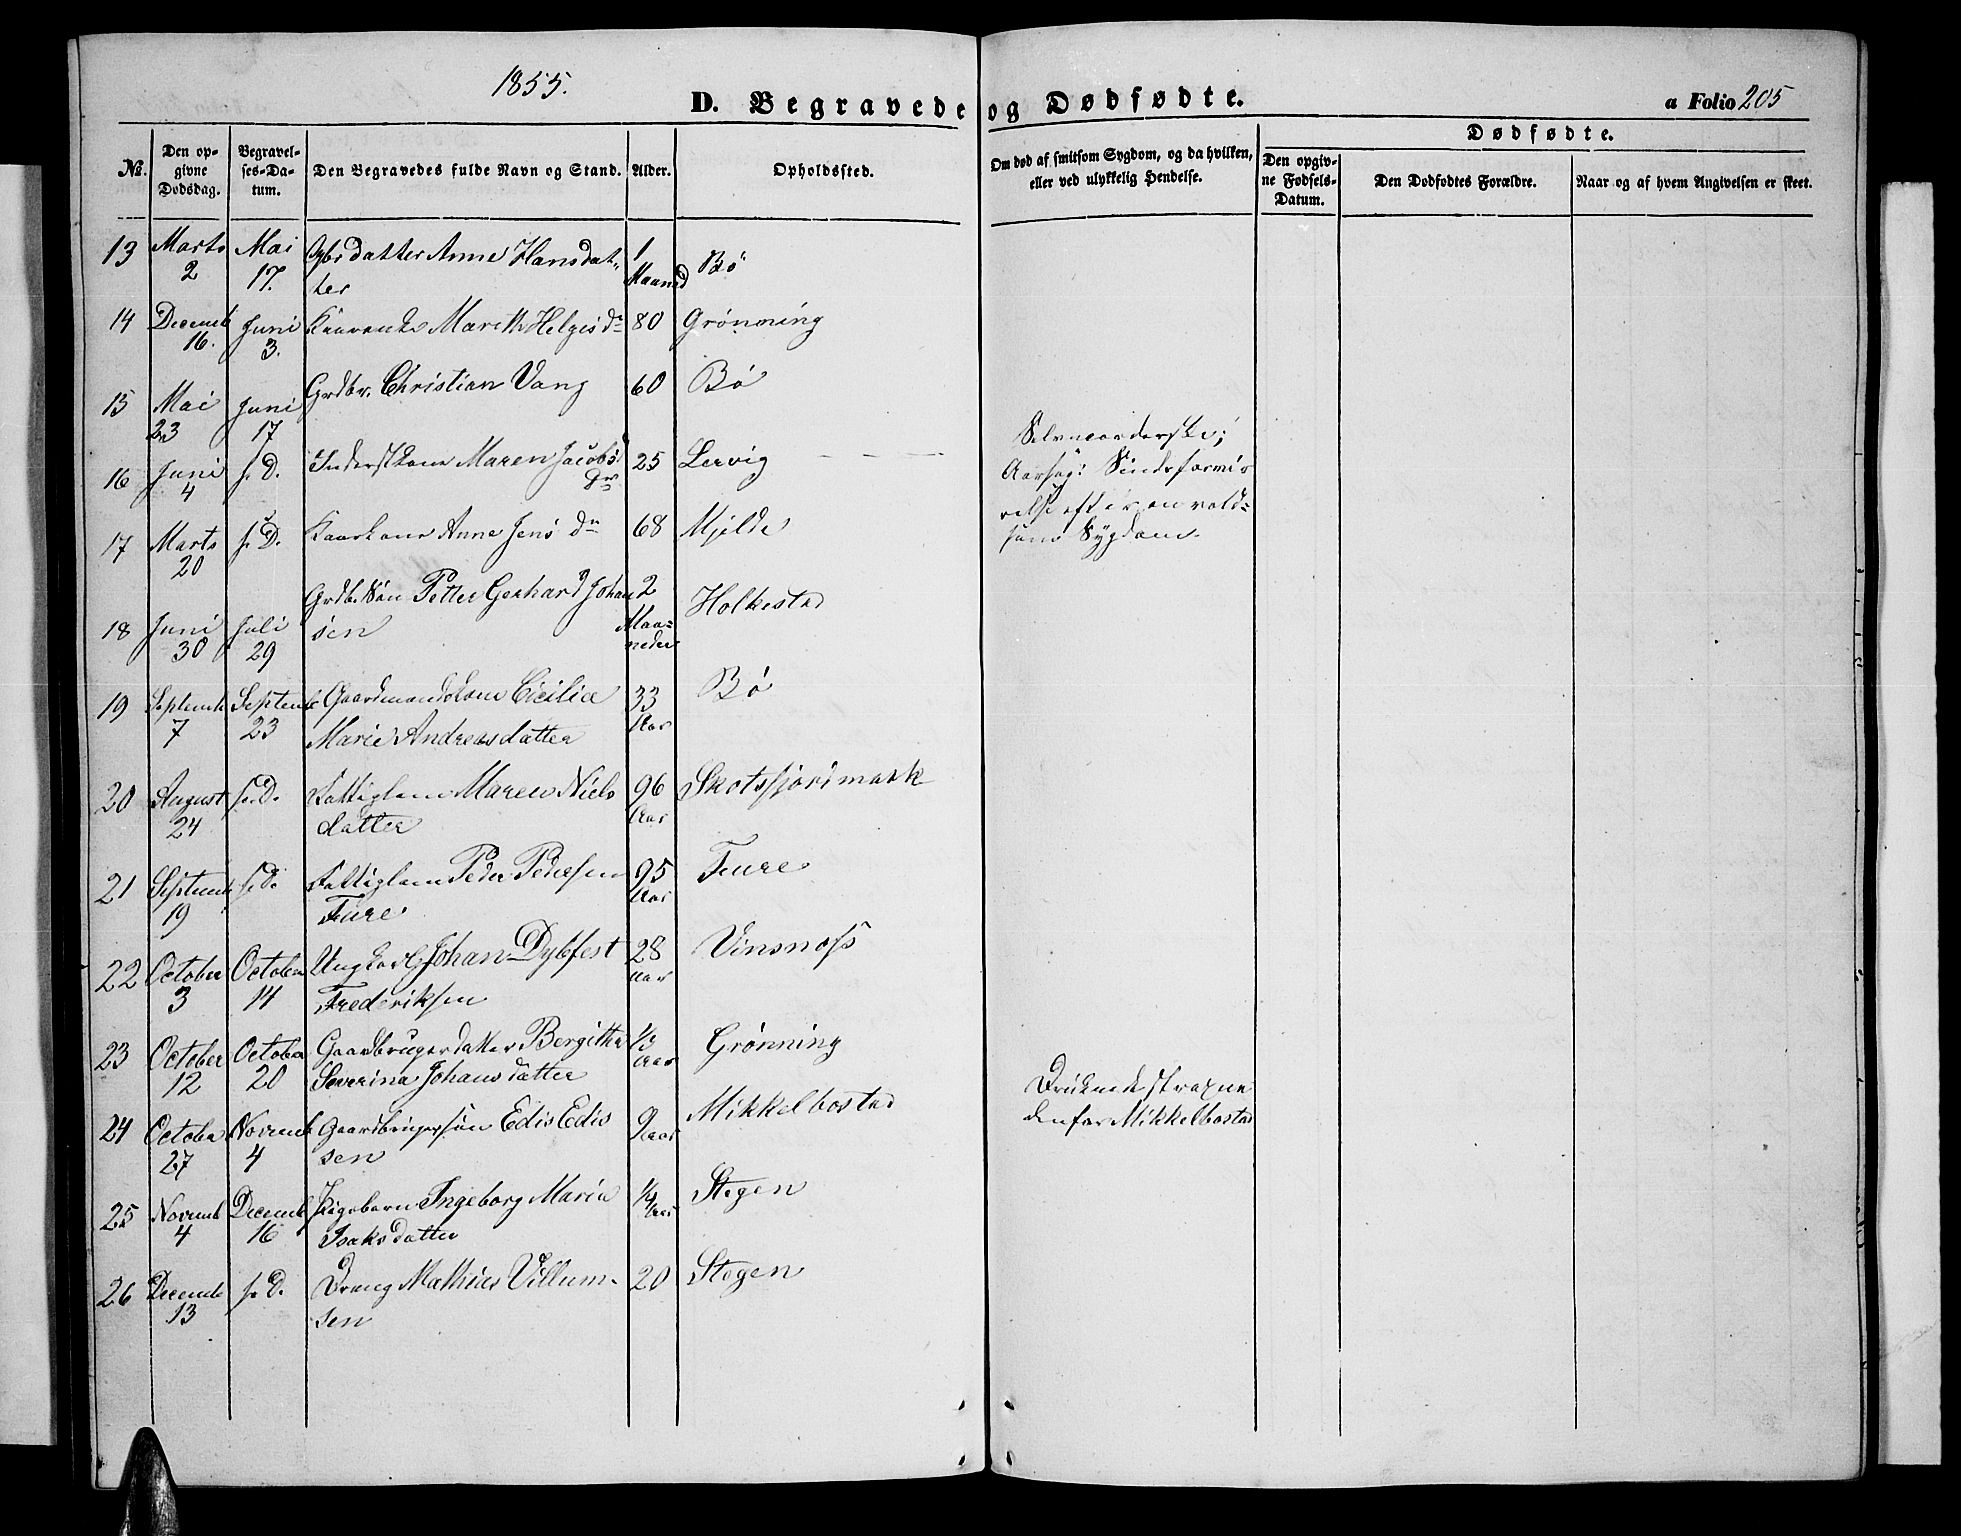 1855.
D. Begravede og Dødfødte.
a Folio 205
Dødfødte.
No.
Den opgivne Dødsdag.
Begravelses-Datum.
Den Begravedes fulde Navn og Stand.
Alder.
Opholdssted.
Om død af smitsom Sygdom, og da hvilken, eller ved ulykkelig Hendelse.
Den opgivne Fødsels-Datum.
Den Dødfødtes Forældre.
Naar og af hvem Angivelsen er skeet.
13 Marts 2 Mai 17. datter Anne Hansdat- 1 Maaned Bø
ter
14 Decemb 16. Juni 3. Mareth Helgesdr 80 Grønning
15 Mai 23 Juni 17 Grdbr. Christian Vang 60 Bø
16 Juni 4 s. D. Inderstkone Maren Jacobs 25 Lervig
Dr
Selvmorderske;
Aarsag: Sindsforvir
relse efter en vold=
som Sygdom.
17 Marts 20 s. D. Kaarkone Anne Jens dr 68 Mjelde
18 Juni 30 Juli 29 Grdb. Søn Petter Gerhard Johan 2 Maa=neder Holkestad
sen
19 Septemb 7 Septemb 23 Gaardmandskone Cicilia 33 Aar Bø
Marie Andreasdatter
20 August 24 s. D. Fattiglem Maren Niels 96 Aar Skotsfjordmark
datter
21 Septemb 19 s. D. Fattiglem Peder Pedersen 95 Aar Fure
Fure
22 October 3 October 14 Ungkarl Johan Dybfest 28 Aar Vinsnoss
Frederiksen
23 October 12 October 20 Gaardbrugerdatter Bergitha 1/3 Aar Grønning
Severina Johansdatter
24 October 27 Novemb 4 Gaardbrugersøn Edis Edis 9 Aar Mikkelbostad
sen
Druknede strax ne
denfor Mikkelbostad
25 Novemb 4 Decemb 16 Pigebarn Ingeborg Maria 1/4 Aar Stegen
Isaksdatter
26 Decemb 13 s. D. Dreng Mathias Villum- 20 Stegen
sen